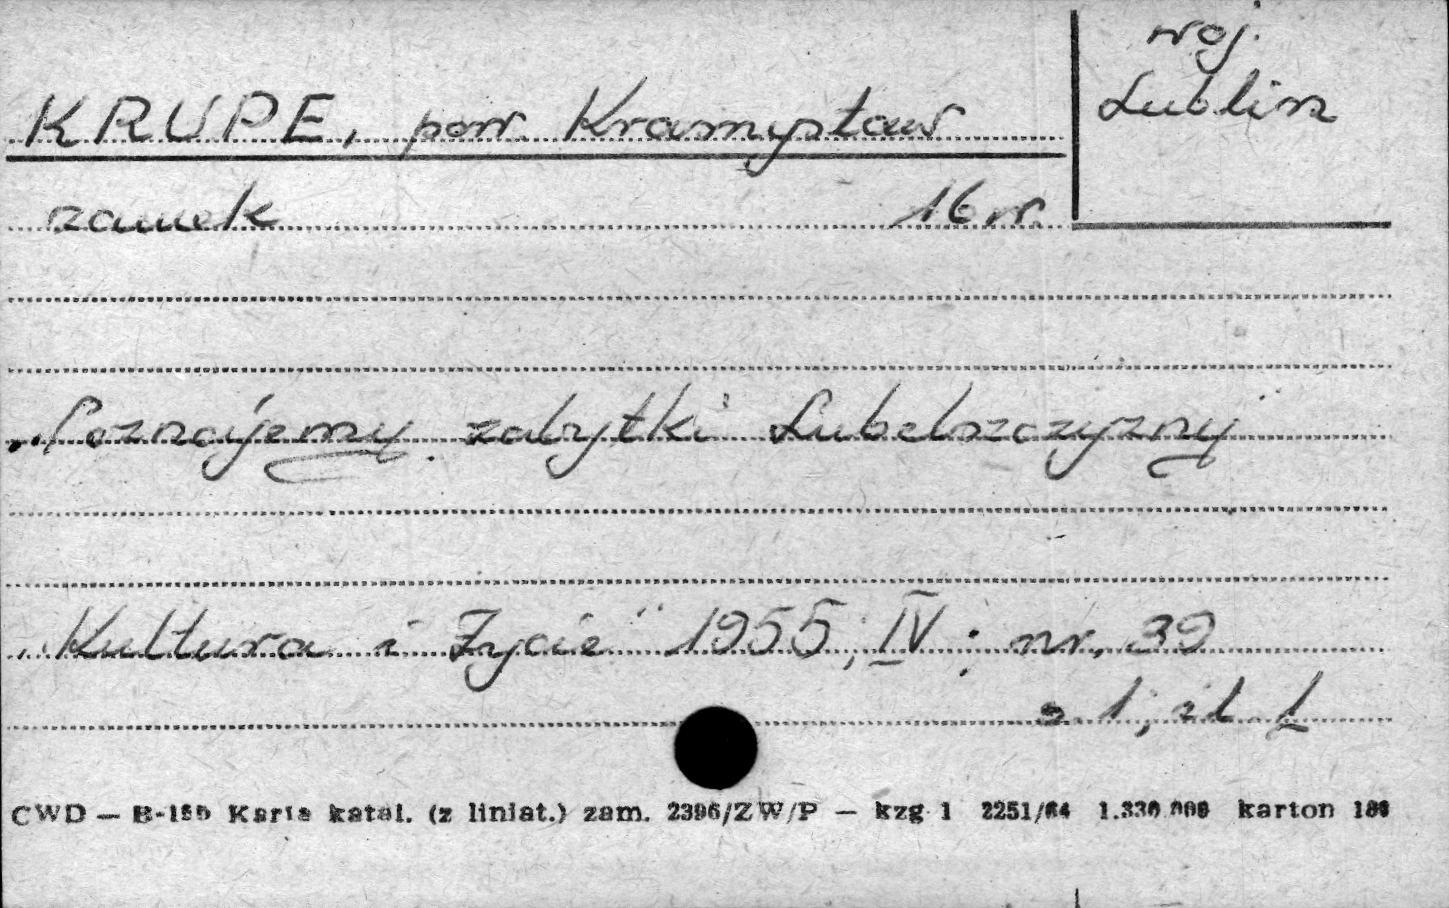 woj.
Lublin
KRUPE, pow. Krasnystaw
zamek 16 w.
„Poznajemy zabytki Lubelszczyzny"
„Kultura i Życie" 1955; IV; nr. 39
s. 1; il. 1
CWD — B-155 Karta katal. (z liniat.) zam. 2396/ZW/P — kzg 1 2251/64 1.330.000 karton